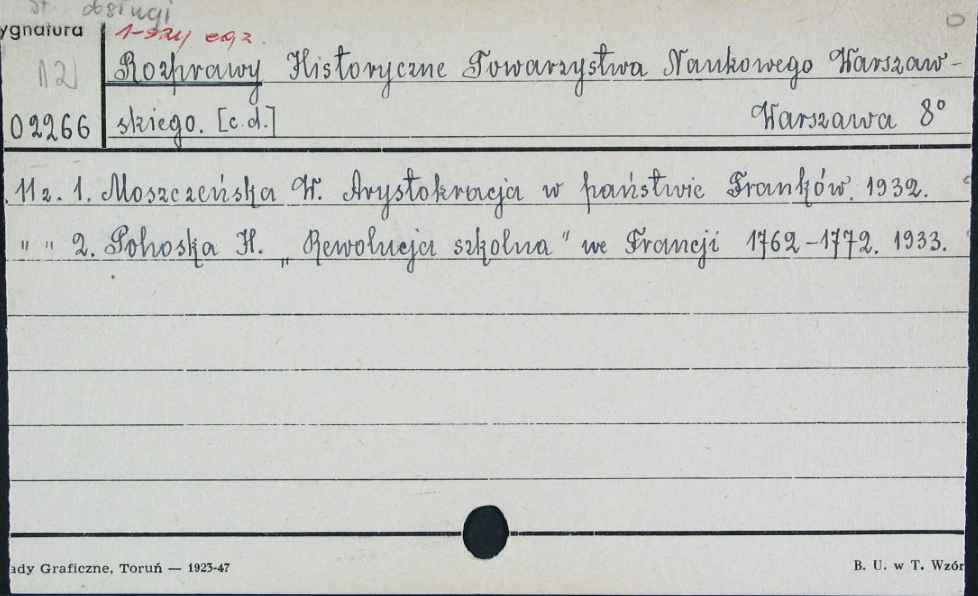 obsługi
ygnatura 1-szy egz.
12
Rozprawy Historyczne Towarzystwa Naukowego Warszaw-
02266 skiego. [c.d.] Warszawa 8°
11 z. 1. Moszczeńska W. Arystokracja w państwie Franków. 1932.
" " 2. Pohoska H. „Rewolucja szkolna" we Francji 1762-1772. 1933.
ady Graficzne, Toruń — 1925-47 B. U. w T. Wzór